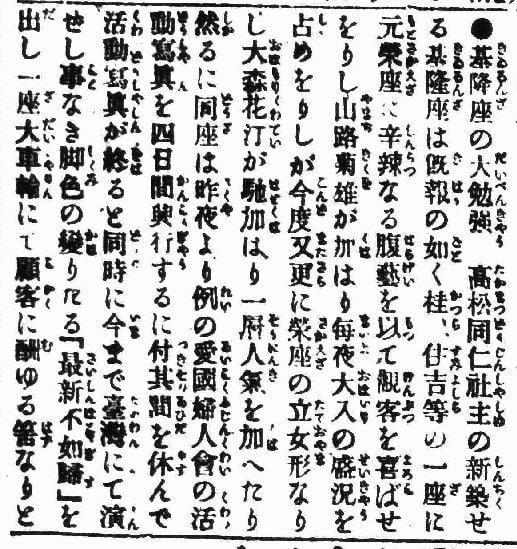 ●基隆座の大勉強　高松同仁社主の新築せ
る基隆座は既報の如く桂、住吉等の一座に
元榮座に辛辣なる腹藝を以て観客を喜ばせ
をりし山路菊雄が加はり毎夜大入の盛況を
占めをりしが今度又更に榮座の立女形なり
し大森花汀が馳加はり一層人氣を加へたり
然るに同座は昨夜より例の愛國婦人會の活
動寫眞を四日間興行するに付其間を休んで
活動寫眞が終ると同時に今まで臺灣にて演
せし事なき脚色の變りたる『最新不如歸』を
出し一座大車輪にて顧客に酬ゆる筈なりと